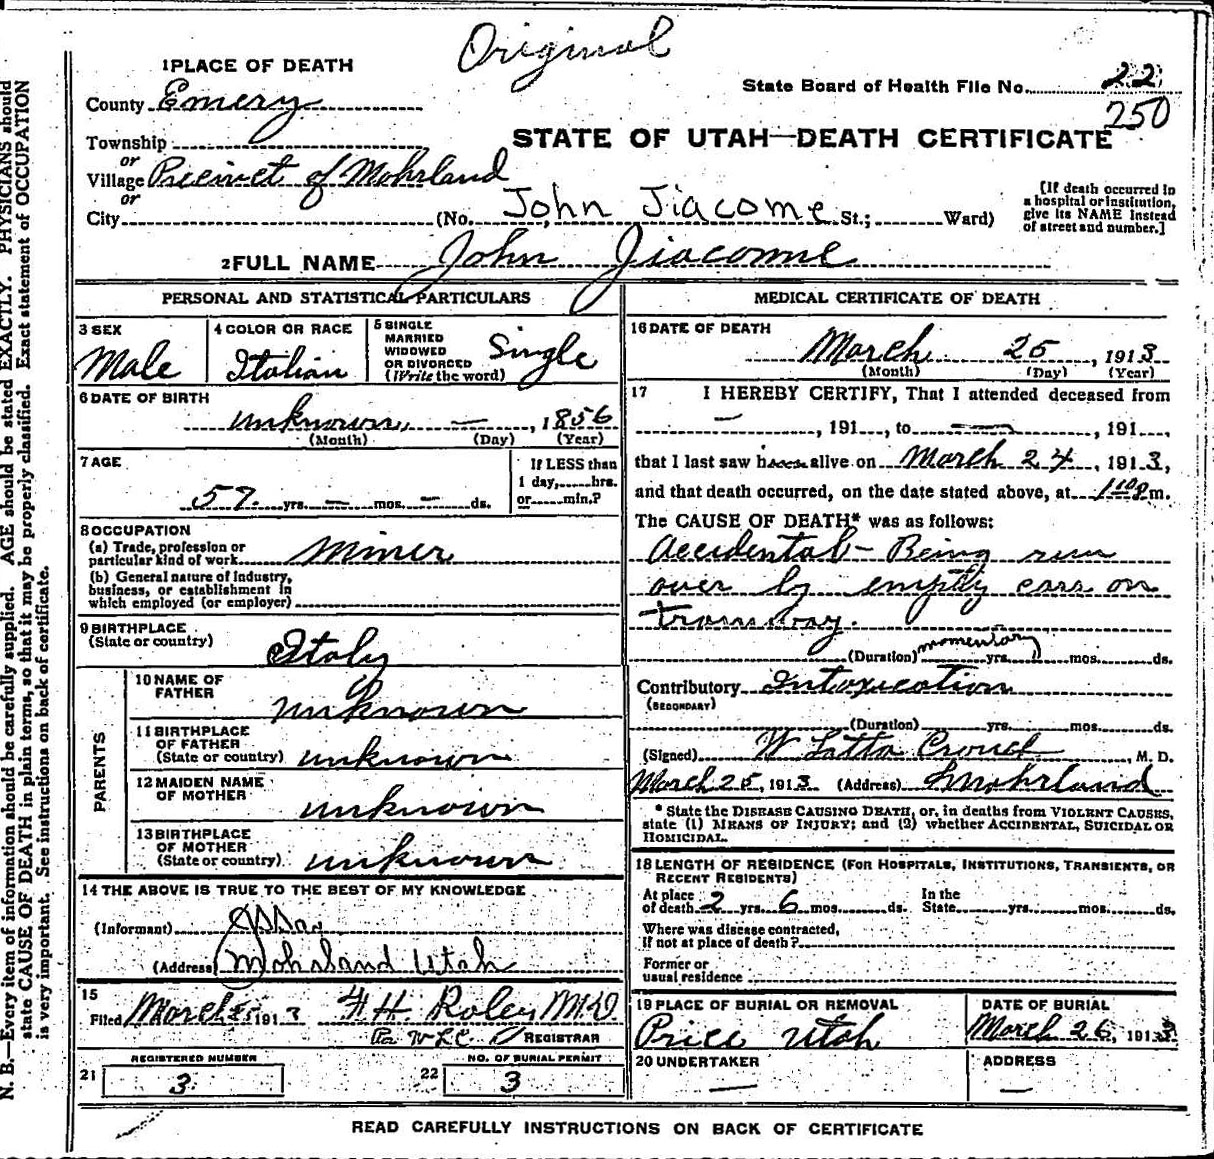 Original
1 PLACE OF DEATH
County Emery
State Board of Health File No. 22
250
Township
or
Village Precinct of Mohrland
or
City (No. John Jiacome St.; Ward)
STATE OF UTAH—DEATH CERTIFICATE
[If death occurred in
a hospital or institution,
give its NAME instead
of street and number.]
2 FULL NAME John Jiacome
PERSONAL AND STATISTICAL PARTICULARS
3 SEX
Male
4 COLOR OR RACE
Italian
5 SINGLE
MARRIED
WIDOWED
OR DIVORCED
(Write the word)
Single
6 DATE OF BIRTH
unknown, — , 1856
(Month) (Day) (Year)
7 AGE
57 yrs. — mos. — ds.
If LESS than
1 day, hrs.
or min.?
8 OCCUPATION
(a) Trade, profession or
particular kind of work Miner
(b) General nature of industry,
business, or establishment in
which employed (or employer)
9 BIRTHPLACE
(State or country) Italy
PARENTS
10 NAME OF
FATHER unknown
11 BIRTHPLACE
OF FATHER
(State or country) unknown
12 MAIDEN NAME
OF MOTHER unknown
13 BIRTHPLACE
OF MOTHER
(State or country) unknown
14 THE ABOVE IS TRUE TO THE BEST OF MY KNOWLEDGE
(Informant)
(Address) Mohrland Utah
15
Filed March 25 1913 H. Roley M.D
Per W L C REGISTRAR
REGISTERED NUMBER
21 3
NO. OF BURIAL PERMIT
22 3
MEDICAL CERTIFICATE OF DEATH
16 DATE OF DEATH
March 25, 1913
(Month) (Day) (Year)
17 I HEREBY CERTIFY, That I attended deceased from
— , 191 , to — , 191 ,
that I last saw h alive on March 24, 1913,
and that death occurred, on the date stated above, at m.
The CAUSE OF DEATH* was as follows:
Accidental - Being run
over by empty cars on
tramway.
(Duration) momentary yrs. mos. ds.
Contributory Intoxication
(SECONDARY)
(Duration) yrs. mos. ds.
(Signed) W Latta Crouch, M. D.
March 25, 1913 (Address) Mohrland
* State the DISEASE CAUSING DEATH, or, in deaths from VIOLENT CAUSES,
state (1) MEANS OF INJURY; and (2) whether ACCIDENTAL, SUICIDAL OR
HOMICIDAL.
18 LENGTH OF RESIDENCE (FOR HOSPITALS, INSTITUTIONS, TRANSIENTS, OR
RECENT RESIDENTS)
At place In the
of death 2 yrs. 6 mos. ds. State yrs. mos. ds.
Where was disease contracted,
if not at place of death?
Former or
usual residence
19 PLACE OF BURIAL OR REMOVAL
Price Utah
DATE OF BURIAL
March 26, 1913
20 UNDERTAKER
—
ADDRESS
—
READ CAREFULLY INSTRUCTIONS ON BACK OF CERTIFICATE
N. B.—Every item of information should be carefully supplied. AGE should be stated EXACTLY. PHYSICIANS should
state CAUSE OF DEATH in plain terms, so that it may be properly classified. Exact statement of OCCUPATION
is very important. See instructions on back of certificate.